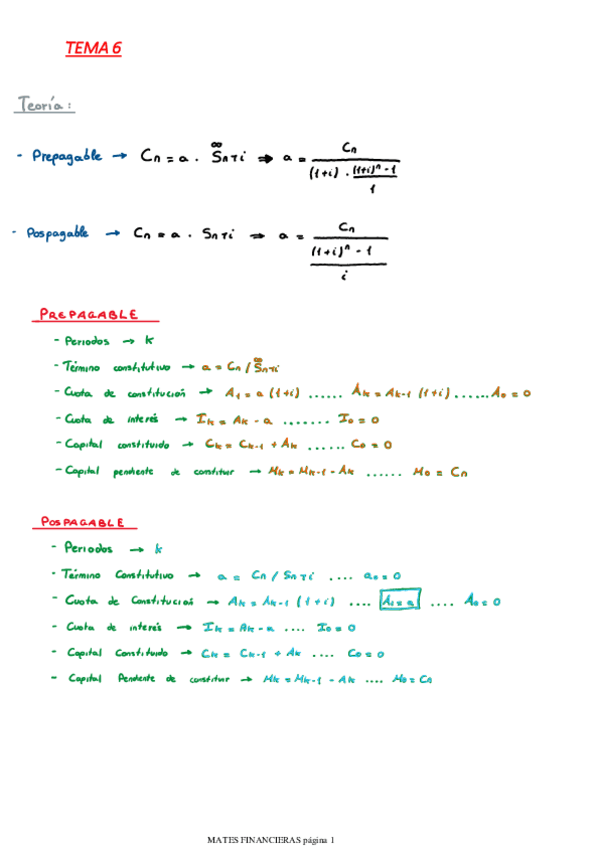 TEMA 6
Teoría:
- Prepagable → Cn = a · S̈n┐i ⇒ a = Cn / ((1+i) · ((1+i)^n - 1) / 1)
- Pospagable → Cn = a · Sn┐i ⇒ a = Cn / (((1+i)^n - 1) / i)
PREPAGABLE
- Periodos → k
- Término constitutivo → a = Cn / S̈n┐i
- Cuota de constitución → A1 = a (1+i) ...... Ak = Ak-1 (1+i) ...... A0 = 0
- Cuota de interés → Ik = Ak - a ....... I0 = 0
- Capital constituido → Ck = Ck-1 + Ak ...... C0 = 0
- Capital pendiente de constituir → Mk = Mk-1 - Ak ...... M0 = Cn
POSPAGABLE
- Periodos → k
- Término Constitutivo → a = Cn / Sn┐i .... a0 = 0
- Cuota de Constitución → Ak = Ak-1 (1+i) .... A1 = a .... A0 = 0
- Cuota de interés → Ik = Ak - a .... I0 = 0
- Capital Constituido → Ck = Ck-1 + Ak .... C0 = 0
- Capital Pendiente de constituir → Mk = Mk-1 - Ak .... M0 = Cn
MATES FINANCIERAS página 1